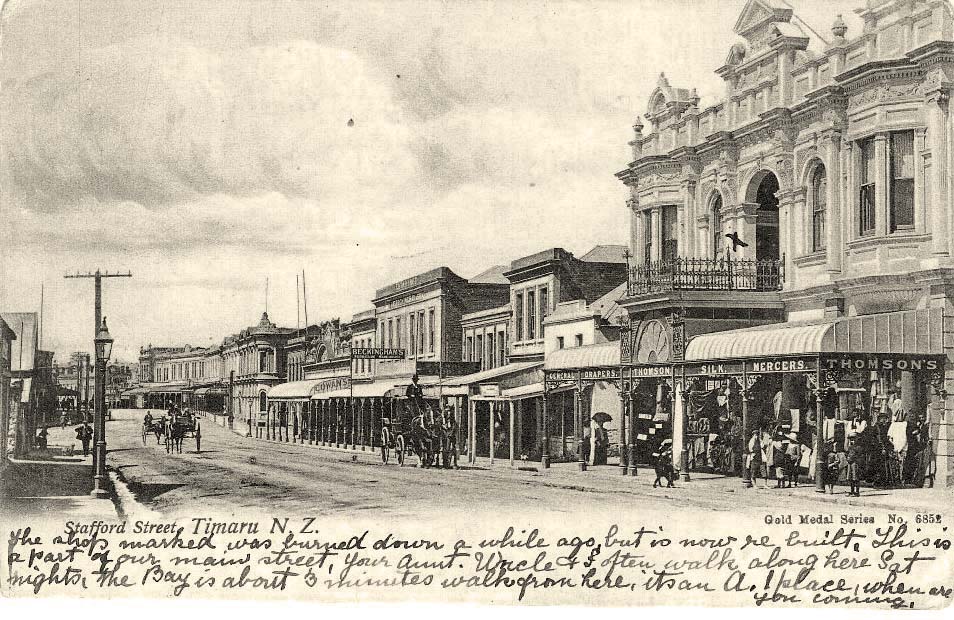 BECKINGHAM'S
COWAN'S
GENERAL DRAPERS. THOMSON. SILK MERCERS. THOMSON'S
Stafford Street, Timaru N. Z.
Gold Medal Series No. 6852
The shop marked was burned down a while ago, but is now re built, This is
a part of our main street, your aunt. Uncle & I often walk along here Sat
nights, the Bay is about 3 minutes walk from here, its an A.1 place, when are
you coming.